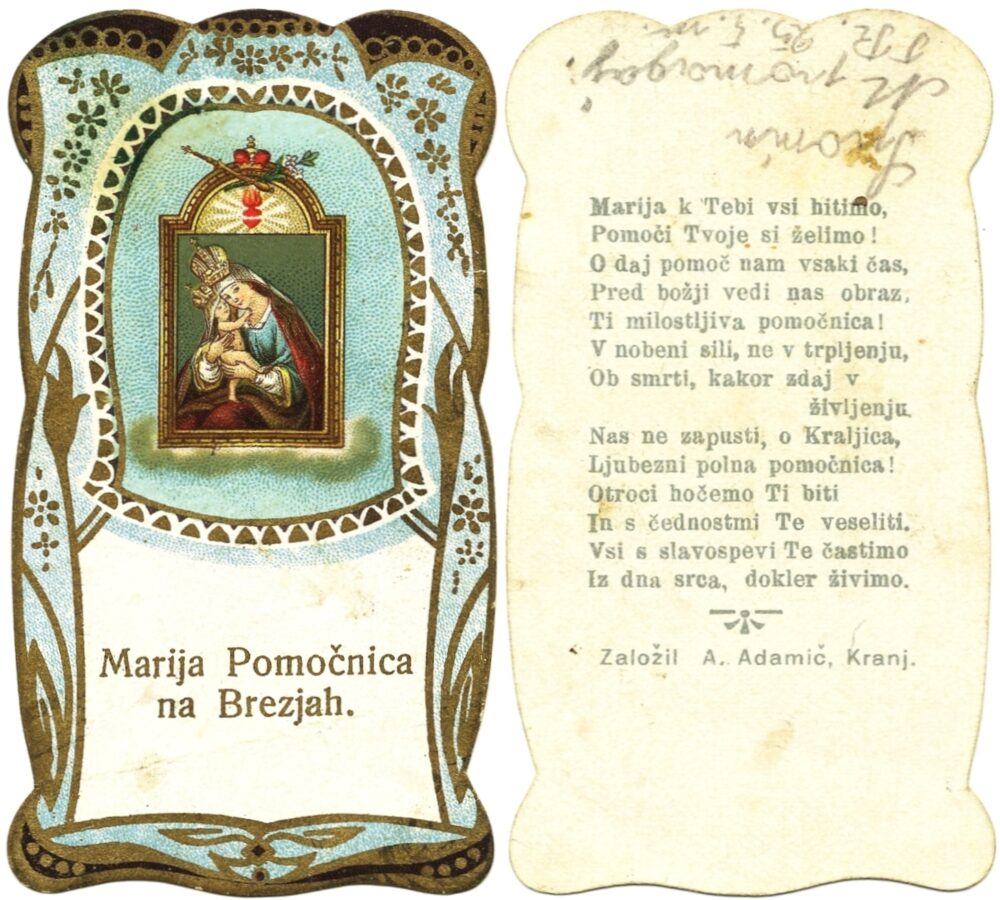 Marija Pomočnica
na Brezjah.
Marija k Tebi vsi hitimo,
Pomoči Tvoje si želimo!
O daj pomoč nam vsaki čas,
Pred božji vedi nas obraz,
Ti milostljiva pomočnica!
V nobeni sili, ne v trpljenju,
Ob smrti, kakor zdaj v
življenju.
Nas ne zapusti, o Kraljica,
Ljubezni polna pomočnica!
Otroci hočemo Ti biti
In s čednostmi Te veseliti.
Vsi s slavospevi Te častimo
Iz dna srca, dokler živimo.
Založil A. Adamič, Kranj.